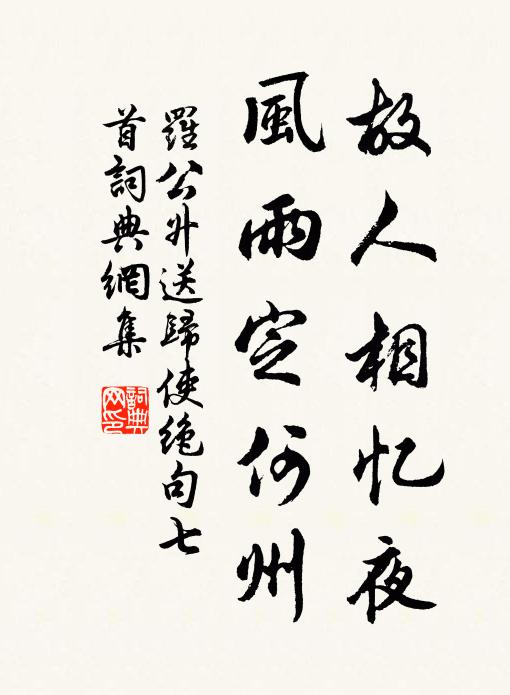 故人相忆夜
風雨定何州
羅公升送歸使絶句七
首詞典網集
詞典网印